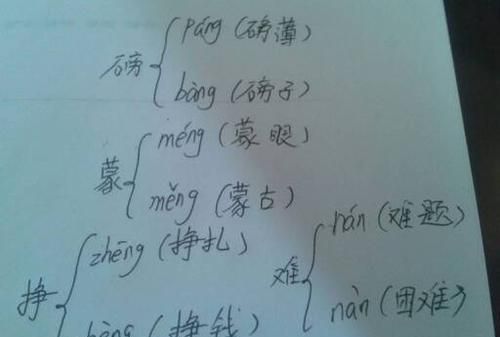 páng (磅薄)
磅
bàng (磅子)
méng (蒙眼)
蒙
měng (蒙古)
zhēng (挣扎)
挣
(挣钱)
nán (难题)
难
nàn (困难)